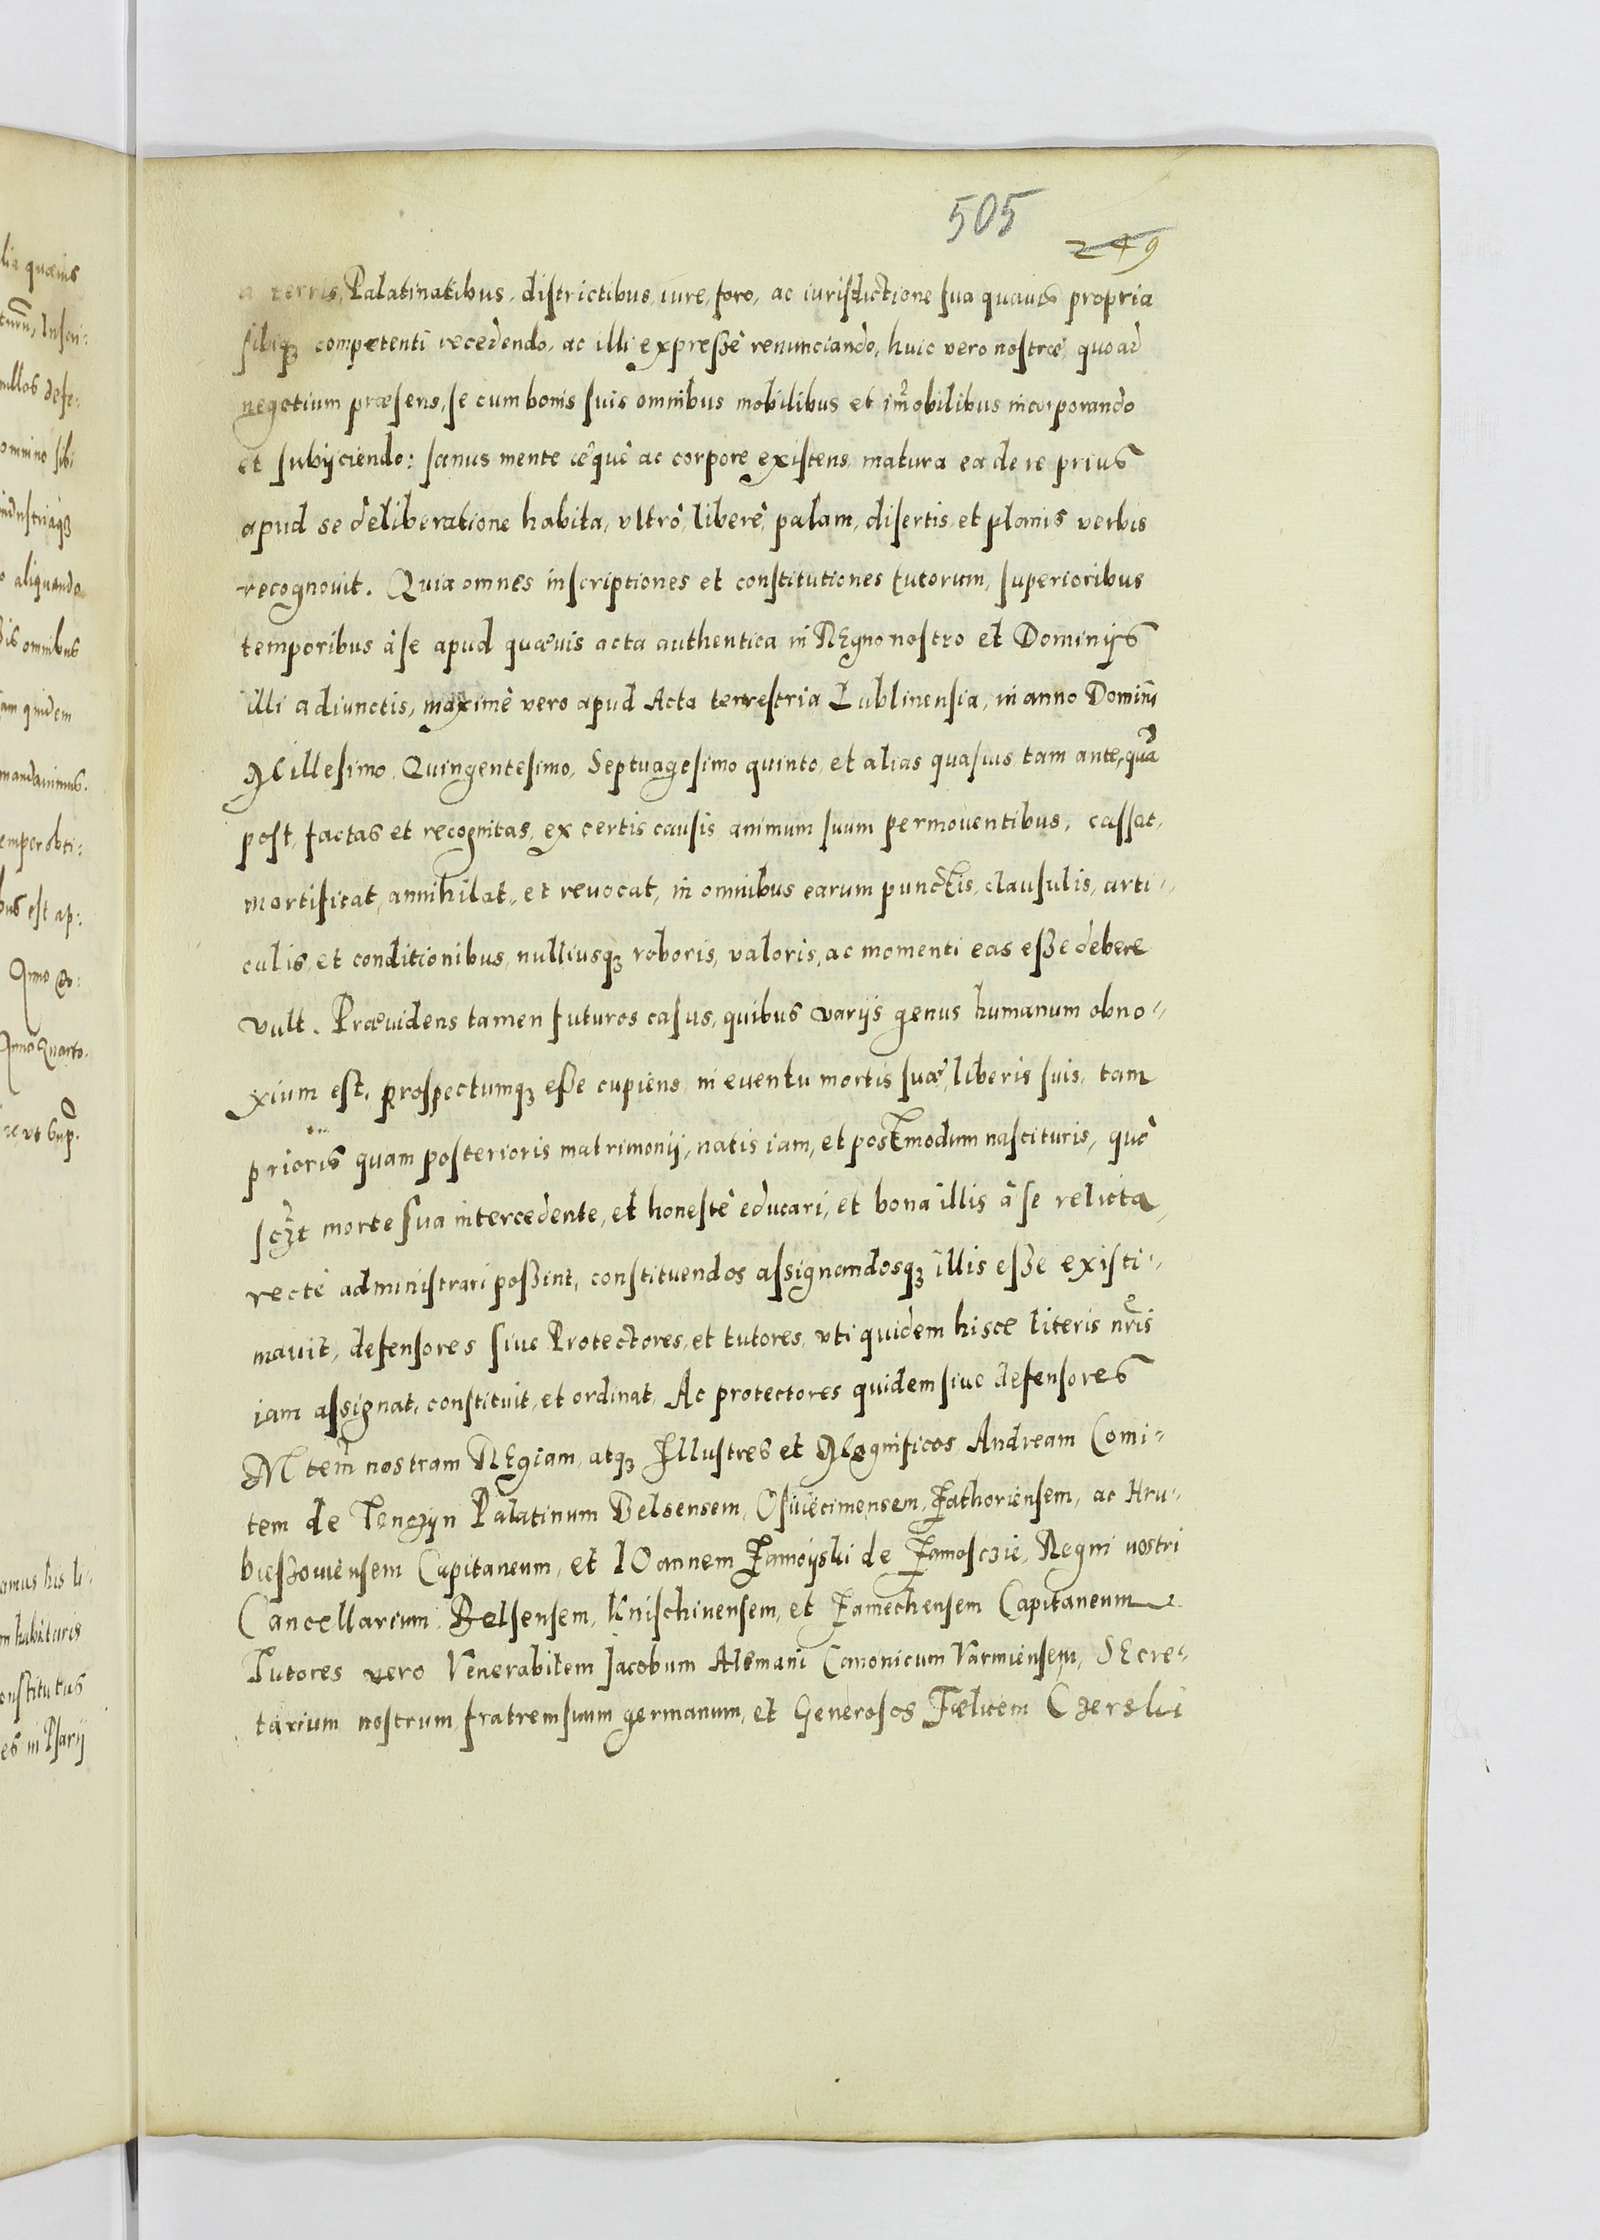 505
249
a terris, Palatinatibus, districtibus, iure, foro, ac iurisdictione sua quauis propria
sibiq₃ competenti recedendo, ac illi expreßè renunciando, huic vero nostræ, quoad
negotium præsens, se cum bonis suis omnibus mobilibus et im̃obilibus incorporando
et subijciendo: sanus mente æquè ac corpore existens, matura ea de re prius
apud se deliberatione habita, vltrò, liberè, palam, disertis, et planis verbis
recognouit. Quia omnes inscriptiones et constitutiones tutorum, superioribus
temporibus à se apud quæuis acta authentica in REgno nostro et Dominijs
illi adiunctis, maximè vero apud Acta terrestria Lublinensia, in anno Domini
Millesimo, Quingentesimo, Septuagesimo quinto, et alias quasuis tam ante, quã
post, factas et recognitas, ex certis causis animum suum permouentibus, cassat,
mortificat, annihilat, et reuocat, in omnibus earum punctis, clausulis, arti-
culis, et conditionibus, nulliusq₃ roboris, valoris, ac momenti eas eße debere
vult. Præuidens tamen futuros casus, quibus varijs genus humanum obno-
xium est, prospectumq₃ eße cupiens, in euentu mortis suæ, liberis suis, tam
prioris quam posterioris matrimonij, natis iam, et postmodum nascituris, quò
sczt morte sua intercedente, et honestè educari, et bona illis à se relicta,
rectè administrari poßent, constituendos assignandosq₃ illis eße existi-
mauit, defensores siue Protectores, et tutores, vti quidem hisce literis nris
iam assignat, constituit, et ordinat, Ac protectores quidem siue defensores
M tem̃ nostram REgiam, atq₃ Illustres et Magnificos Andream Comi-
tem de Tenczyn Palatinum Belsensem, Osuiecimensem, Zathoriensem, ac Hru-
bieszouiensem Capitaneum, et IOannem Zamoijski de Zamosczie, Regni nostri
Cancellarium, Belsensem, Knischinensem, et Zamechensem Capitaneum
Tutores vero Venerabilem Jacobum Alemani Canonicum Varmiensem, SEcre-
tarium nostrum, fratrem suum germanum, et Generosos Fælicem Czerski
lia quæuis
Inscri-
nullos defe-
omnino sibi
industriaq₃
aliquando
omnibus
quidem
mandauimus.
semper obti-
est ap:
Anno Do:
Anno Quarto.
vt sup.
his li-
habituris
constitutus